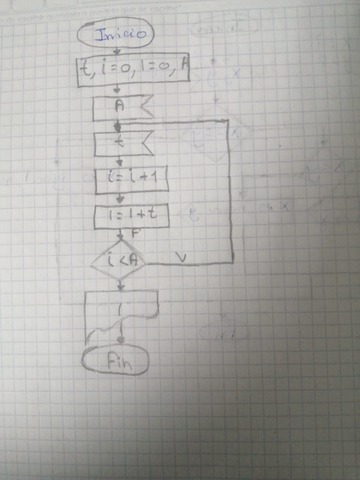 Inicio
t, i=0, l=0, A
A
t
i=i+1
l=l+t
F
i<A
V
l
Fin